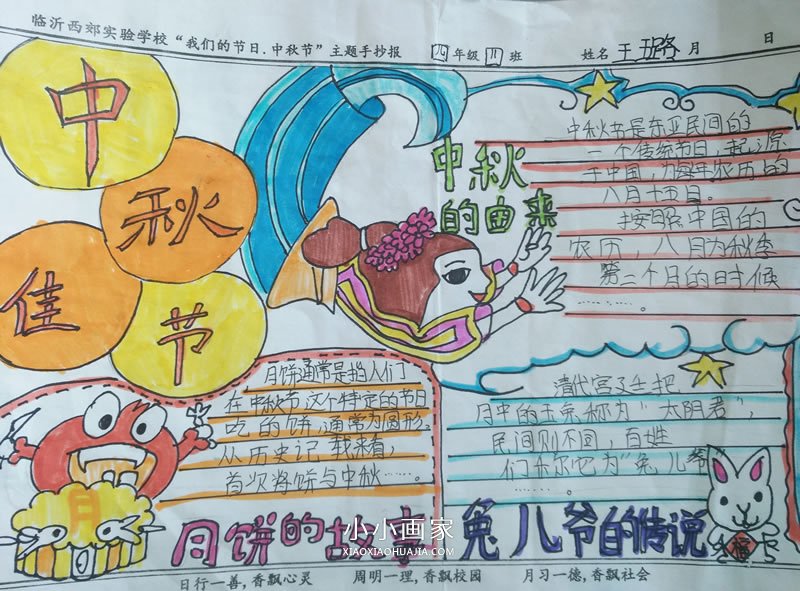 临沂西郊实验学校“我们的节日.中秋节”主题手抄报 四年级四班 姓名王璐 月 日
中
秋
佳
节
中秋
的由来
中秋节是东亚民间的
一个传统节日，起源
于中国，为每年农历的
八月十五日。
按照中国的
农历，八月为秋季
第二个月的时候
……。
月饼通常是指人们
在中秋节这个特定的节日
吃的饼，通常为圆形。
从历史记载来看，
首次将饼与中秋……。
月
月饼的故事
清代宫廷把
月中的玉兔称为“太阴君”，
民间则不同，百姓
们称它为“兔儿爷”
……。
福
兔儿爷的传说
小小画家
XIAOXIAOHUAJIA.COM
日行一善,香飘心灵 周明一理,香飘校园 月习一德,香飘社会